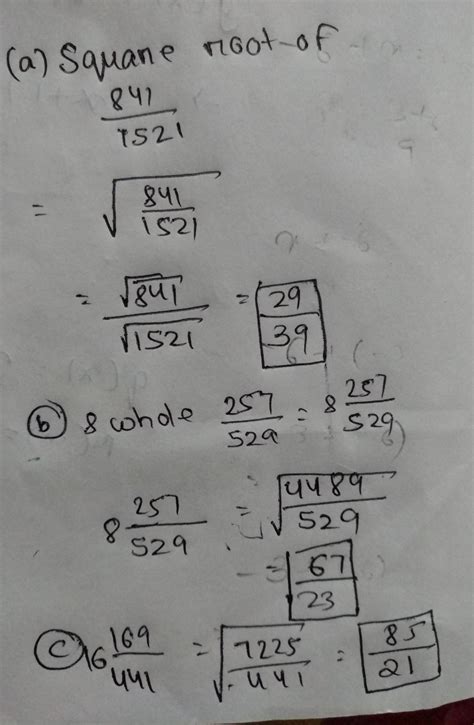 (a) Square root of
841
1521
= √841/1521
= √841/√1521 = 29/39
(b) 8 whole 257/529 = 8 257/529
8 257/529 = √4489/529
= 67/23
(c) 16 169/441 = √7225/441 = 85/21